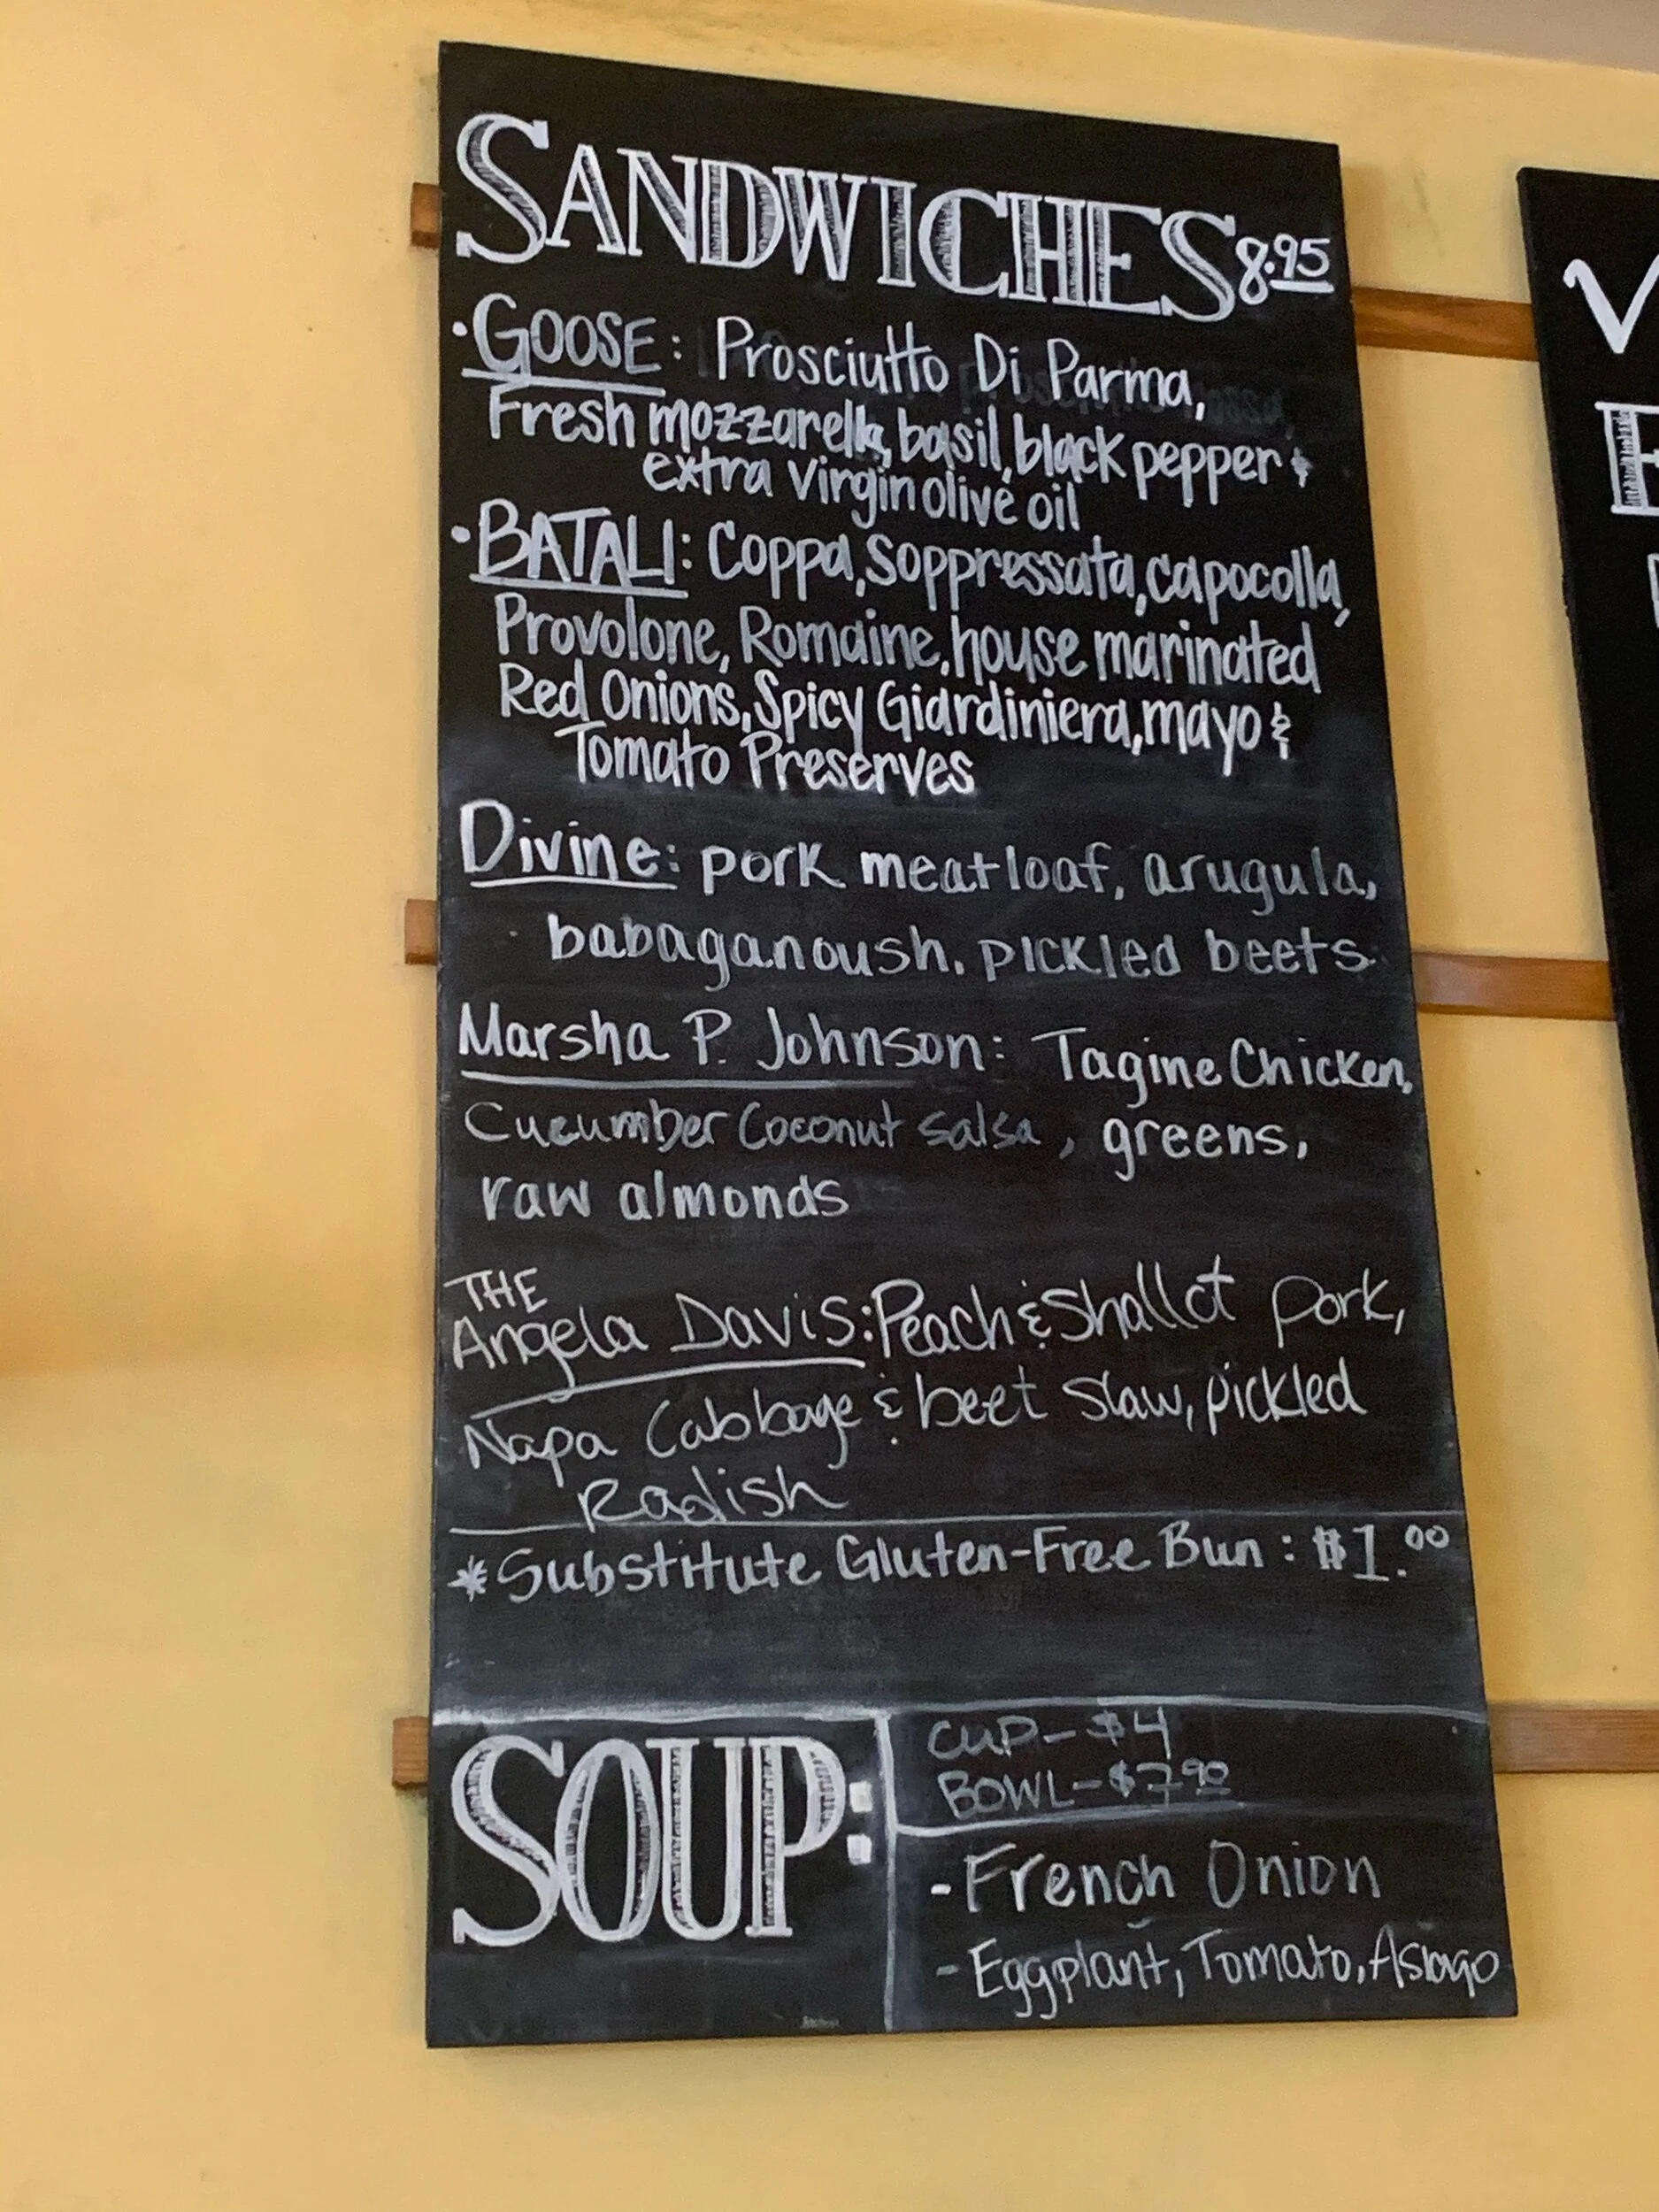 SANDWICHES 8.95
• GOOSE: Prosciutto Di Parma,
Fresh mozzarella, basil, black pepper &
extra virgin olive oil
• BATALI: Coppa, Soppressata, capocolla,
Provolone, Romaine, house marinated
Red Onions, Spicy Giardiniera, mayo &
Tomato Preserves
Divine: pork meatloaf, arugula,
babaganoush, pickled beets
Marsha P. Johnson: Tagine Chicken,
Cucumber Coconut salsa, greens,
raw almonds
THE
Angela Davis: Peach & Shallot pork,
Napa Cabbage & beet slaw, pickled
Radish
*Substitute Gluten-Free Bun: $1.00
SOUP:
CUP- $4
BOWL- $7.90
- French Onion
- Eggplant, Tomato, Asiago